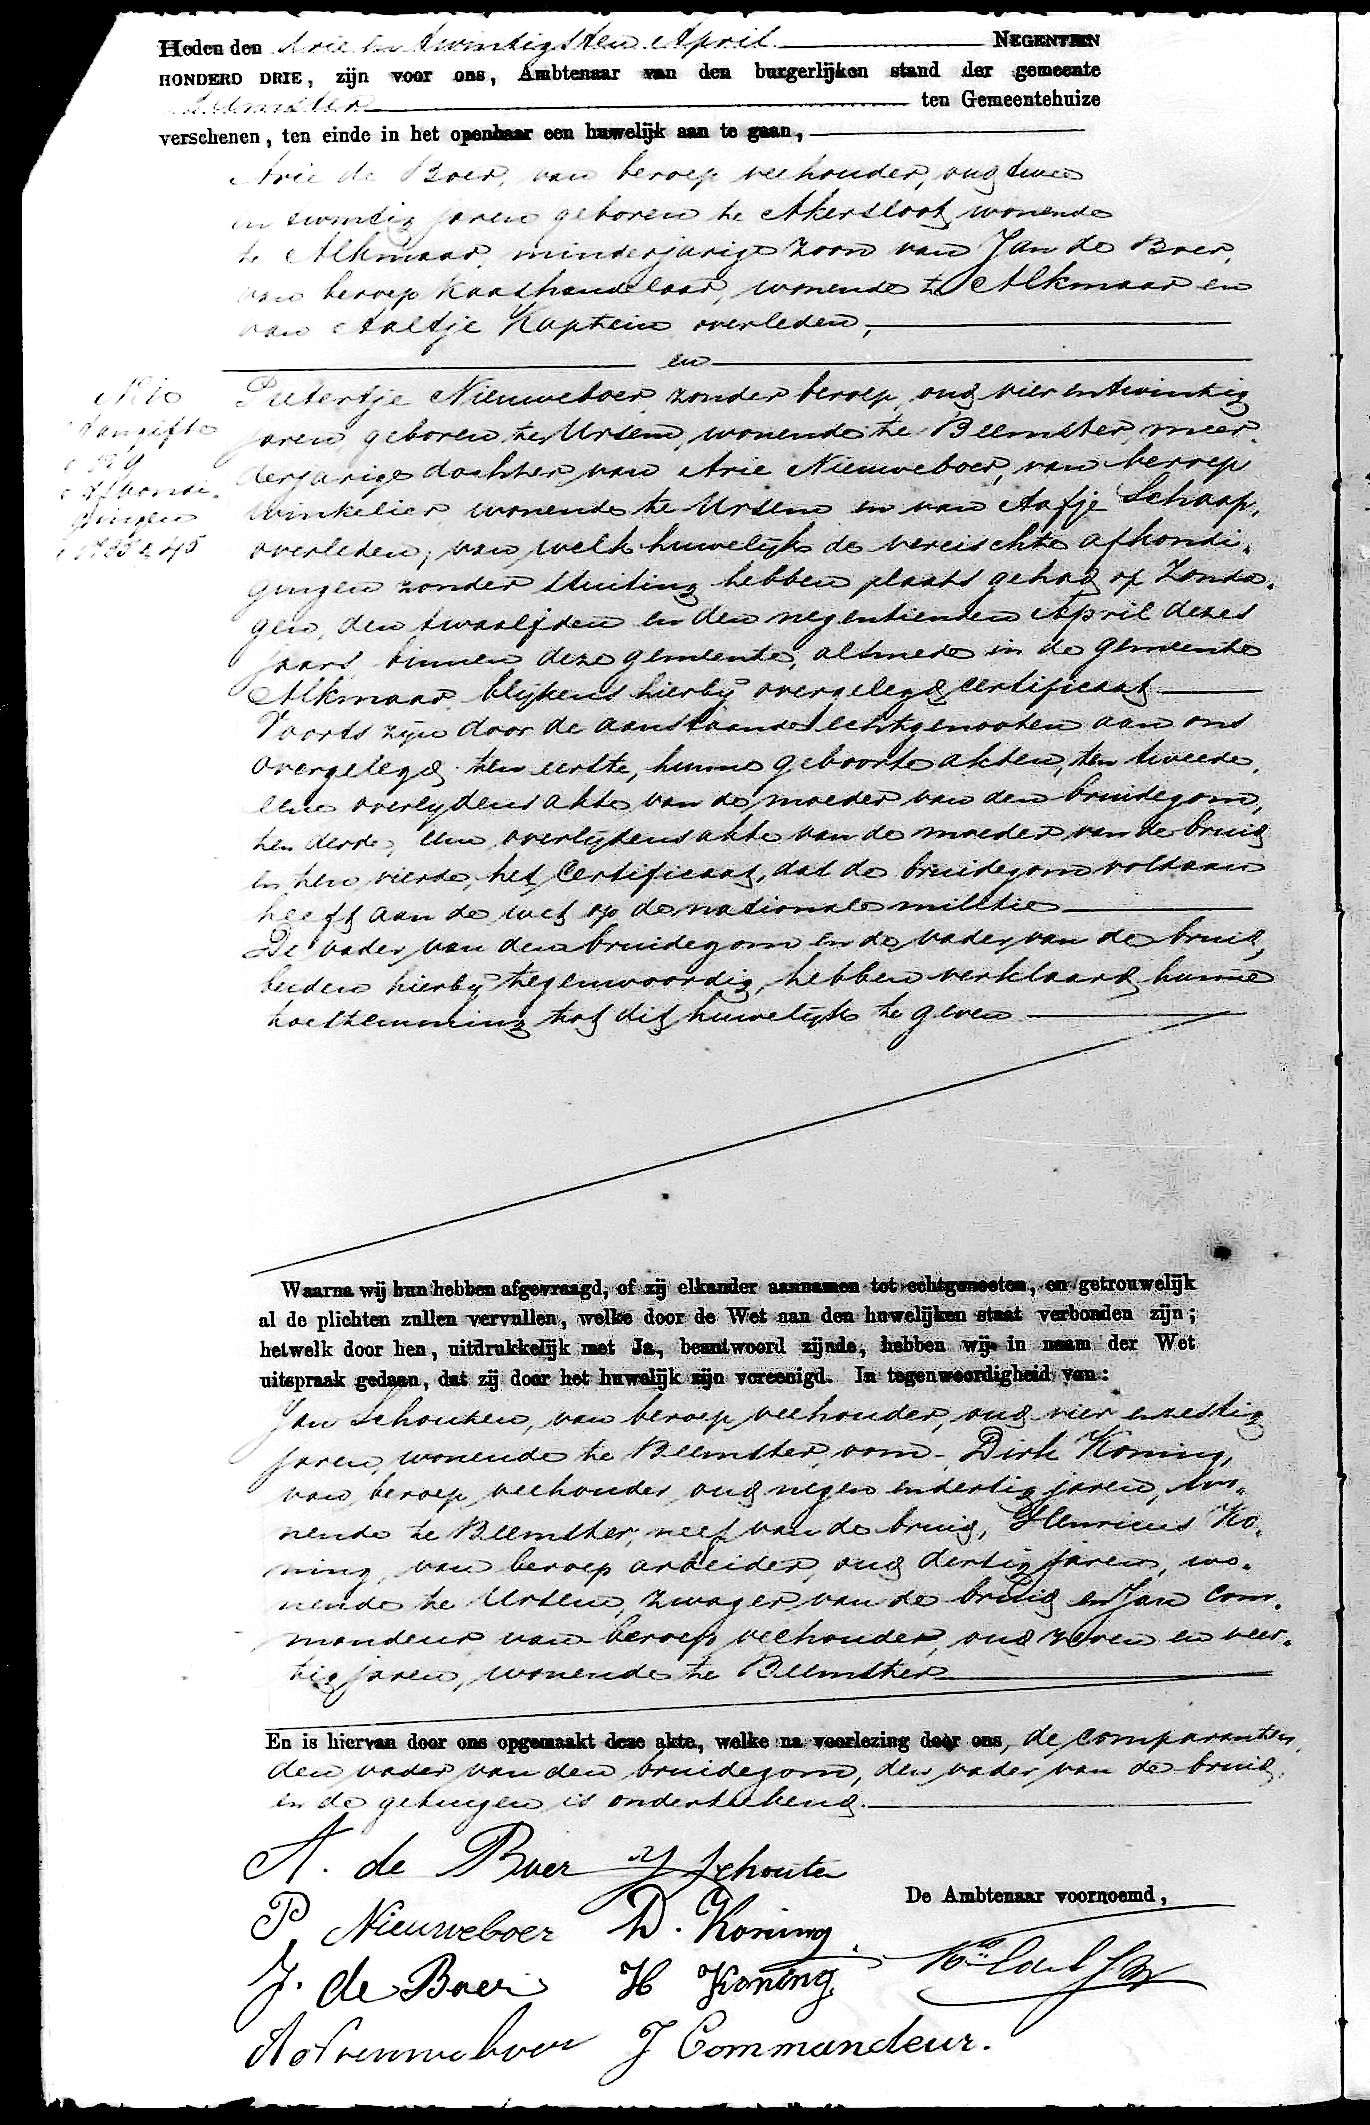 Heden den drie en twintigsten April NEGENTIEN
HONDERD DRIE, zijn voor ons, Ambtenaar van den burgerlijken stand der gemeente
Beemster ten Gemeentehuize
verschenen, ten einde in het openbaar een huwelijk aan te gaan,
Arie de Boer, van beroep veehouder, oud twee
en twintig jaren geboren te Akersloot wonende
te Alkmaar, minderjarige zoon van Jan de Boer,
van beroep kaashandelaar, wonende te Alkmaar en
van Aaltje Kaptein overleden,
en
Pietertje Nieuweboer, zonder beroep, oud vier en twintig
jaren, geboren te Ursem, wonende te Beemster, meer-
derjarige dochter van Arie Nieuweboer, van beroep
winkelier, wonende te Ursem en van Aafje Schaap,
overleden; van welk huwelijk de vereischte afkondi-
gingen zonder stuiting hebben plaats gehad op Zonda-
gen, den twaalfden en den negentienden April dezes
jaars, binnen deze gemeente, alsmede in de gemeente
Alkmaar, blijkens hierbij overgelegd certificaat
Voorts zijn door de aanstaande echtgenooten aan ons
overgelegd ten eerste, hunne geboorte akten, ten tweede,
eene overlijdens akte van de moeder van den bruidegom,
ten derde, eene overlijdensakte van de moeder van de bruid
en ten vierde, het Certificaat, dat de bruidegom voldaan
heeft aan de wet op de nationale militie
De vader van den bruidegom en de vader van de bruid,
beiden hierbij tegenwoordig, hebben verklaard hunne
toestemming tot dit huwelijk te geven
N 10
Aangifte
29
Afkondi-
gingen
45
Waarna wij hun hebben afgevraagd, of zij elkander aannamen tot echtgenooten, en getrouwelijk
al de plichten zullen vervullen, welke door de Wet aan den huwelijken staat verbonden zijn;
hetwelk door hen, uitdrukkelijk met Ja, beantwoord zijnde, hebben wij in naam der Wet
uitspraak gedaan, dat zij door het huwelijk zijn vereenigd. In tegenwoordigheid van:
Jan Schouten, van beroep veehouder, oud vier en zestig
jaren, wonende te Beemster, oom, Dirk Koning,
van beroep veehouder, oud negen en dertig jaren, wo-
nende te Beemster, neef van de bruid, Henricus Ko-
ning, van beroep arbeider, oud dertig jaren, wo-
nende te Ursem, zwager van de bruid en Jan Com-
mandeur, van beroep veehouder, oud zeven en veer-
tig jaren, wonende te Beemster
En is hiervan door ons opgemaakt deze akte, welke na voorlezing door ons, de comparanten,
den vader van den bruidegom, den vader van de bruid,
en de getuigen is onderteekend.
A. de Boer J Schouten
De Ambtenaar voornoemd,
P Nieuweboer D. Koning
J. de Boer H Koning
A Nieuweboer J Commandeur.